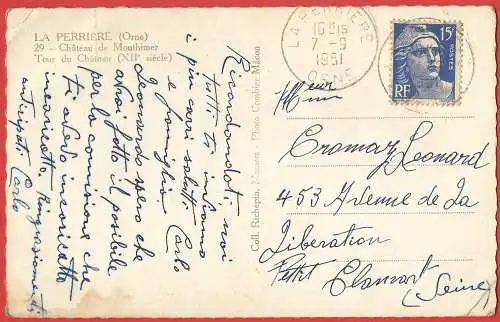 LA PERRIÈRE (Orne)
29. - Château de Monthimer
Tour du Château (XIIe siècle)
Ricordandoti, noi
tutti ti inviamo
i più cari saluti
e famiglia Carlo
Leonardo spero che
avrai fatto il possibile
per la comisione che
ti avevo incaricato
Ringraziamenti
anticipati Carlo
Coll. Richepin, - Photo Combier Mâcon
LA PERRIERE
16H15
7-9
1951
ORNE
15F
POSTES
RF
Mr
Cromaz Leonard
453 Avenue de la
Libération
Petit Clamart
(Seine)